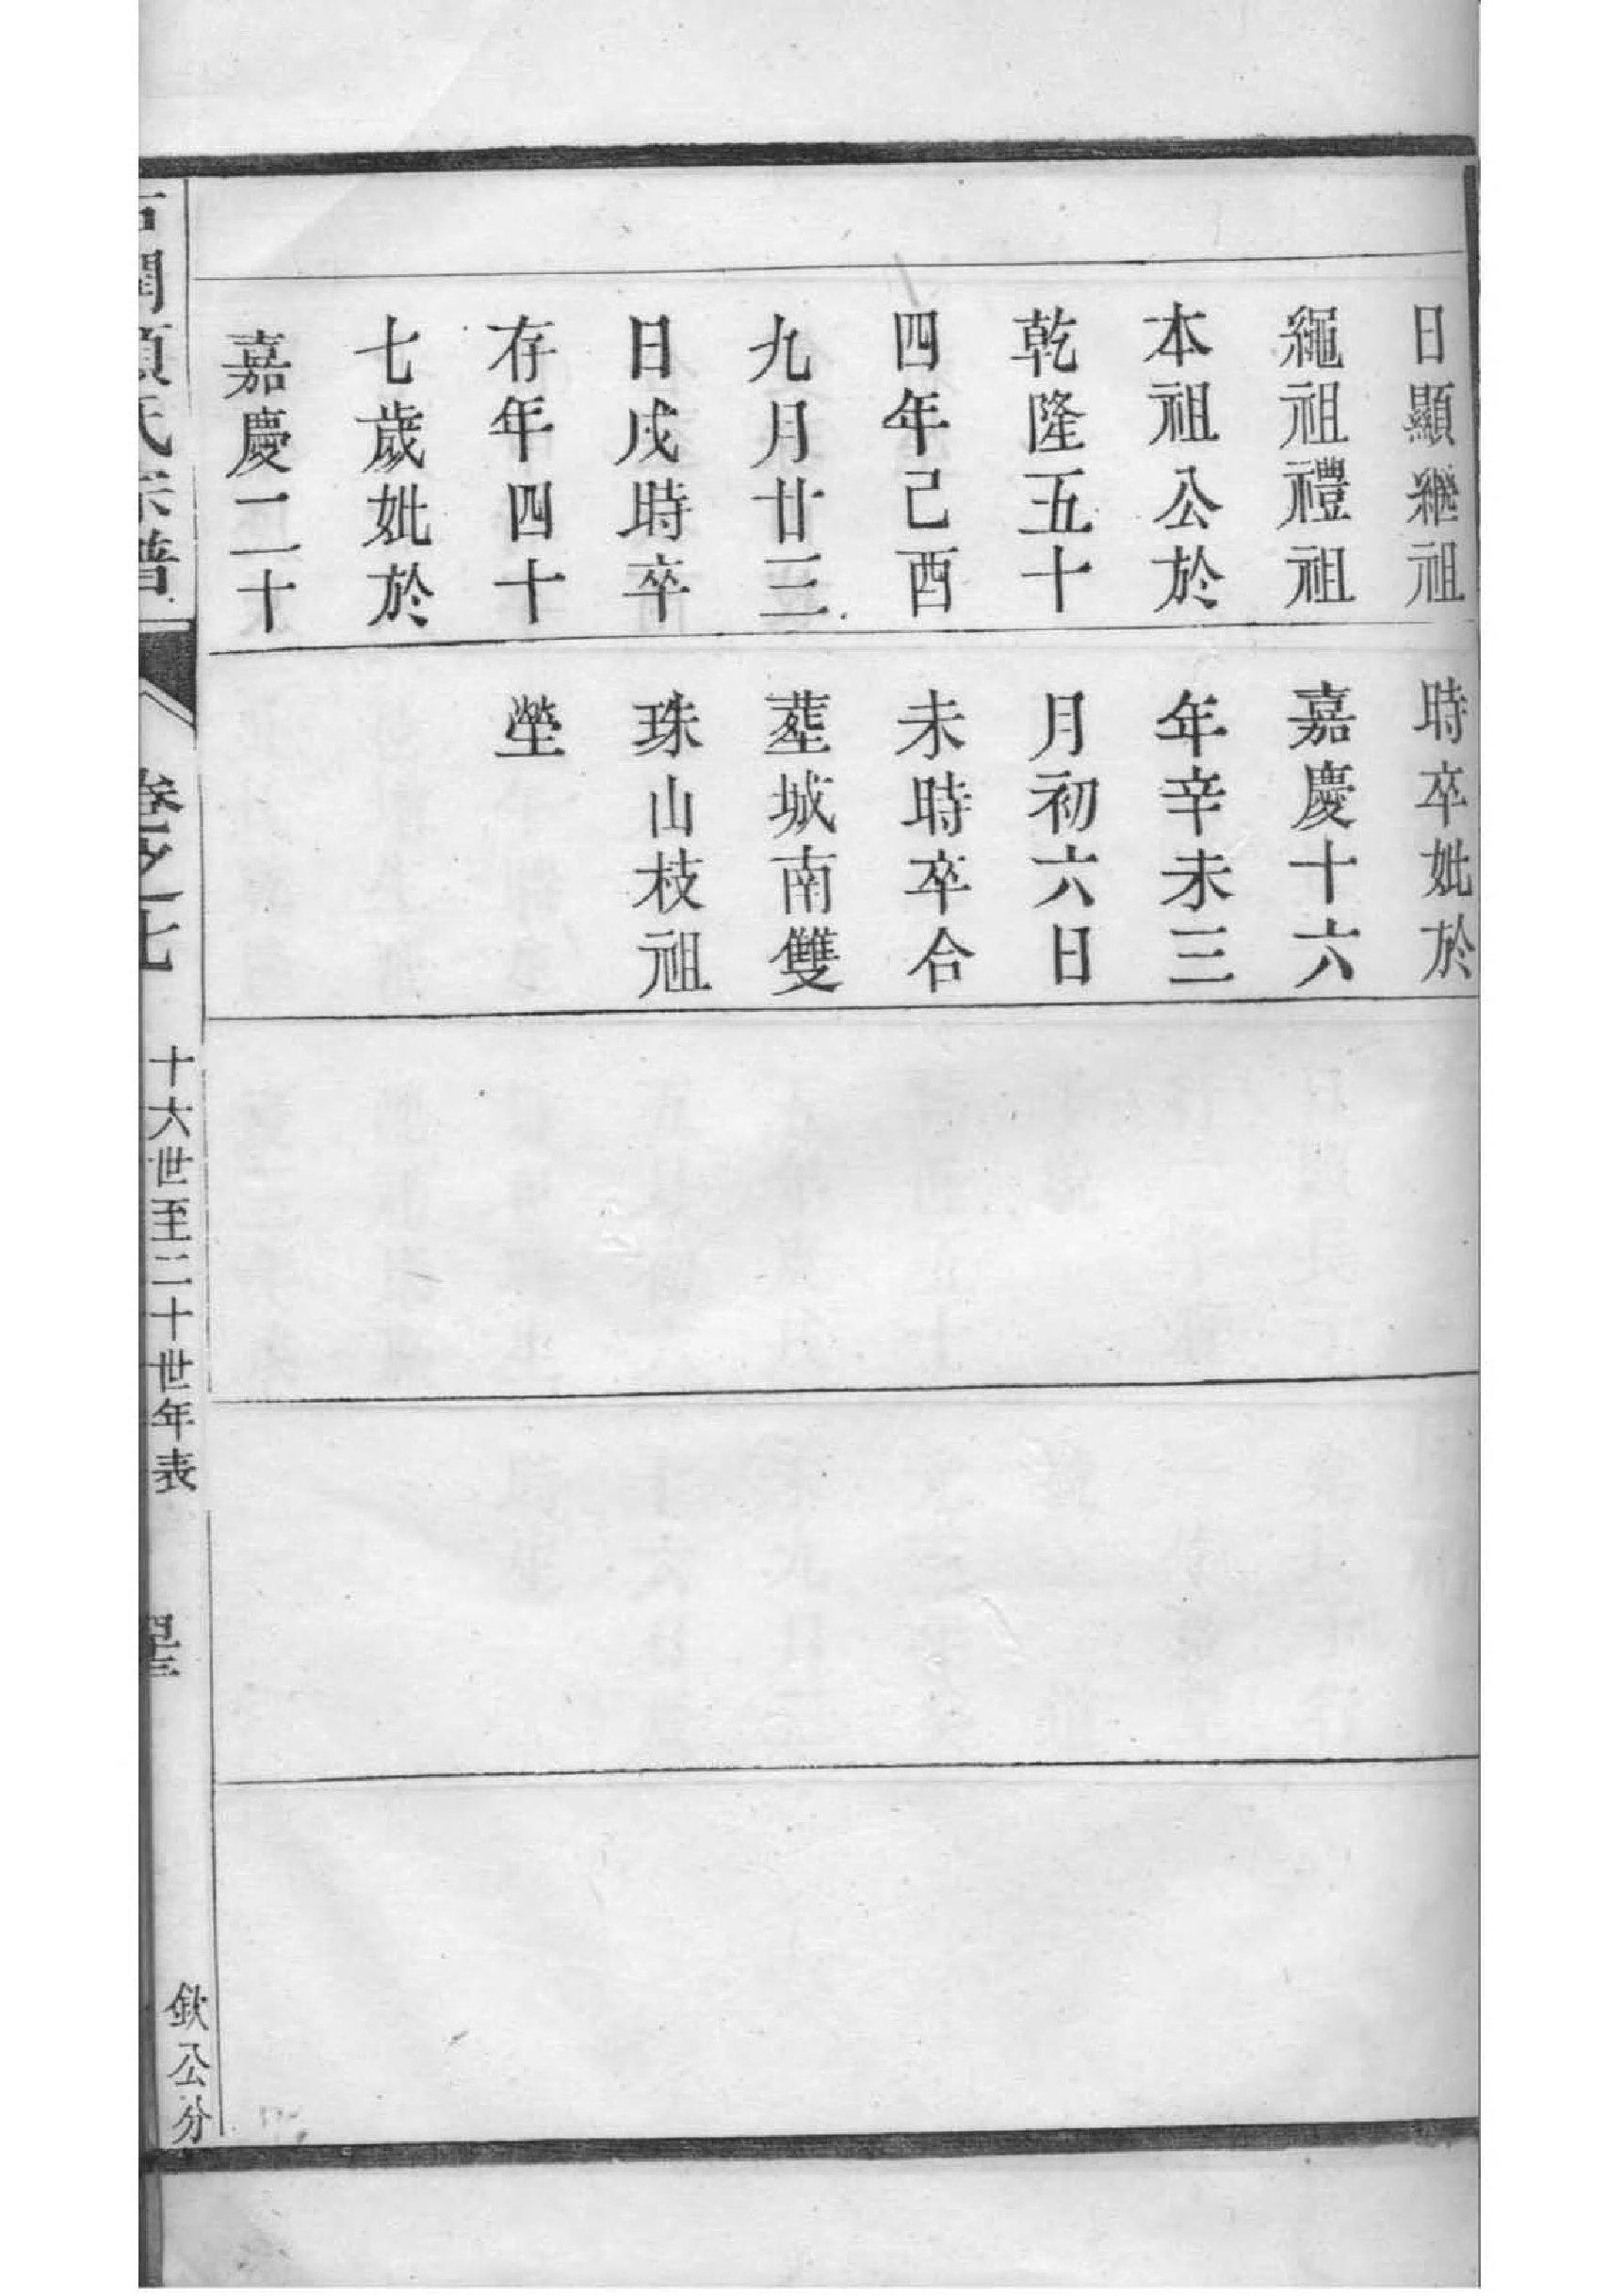 日顯繼祖
繩祖禮祖
本祖公於
乾隆五十
四年己酉
九月廿三
日戌時卒
存年四十
七歲妣於
嘉慶二十
時卒妣於
嘉慶十六
年辛未三
月初六日
未時卒合
塟城南雙
珠山枝祖
塋
氏宗譜
卷之七
十六世至二十世年表
欽公分